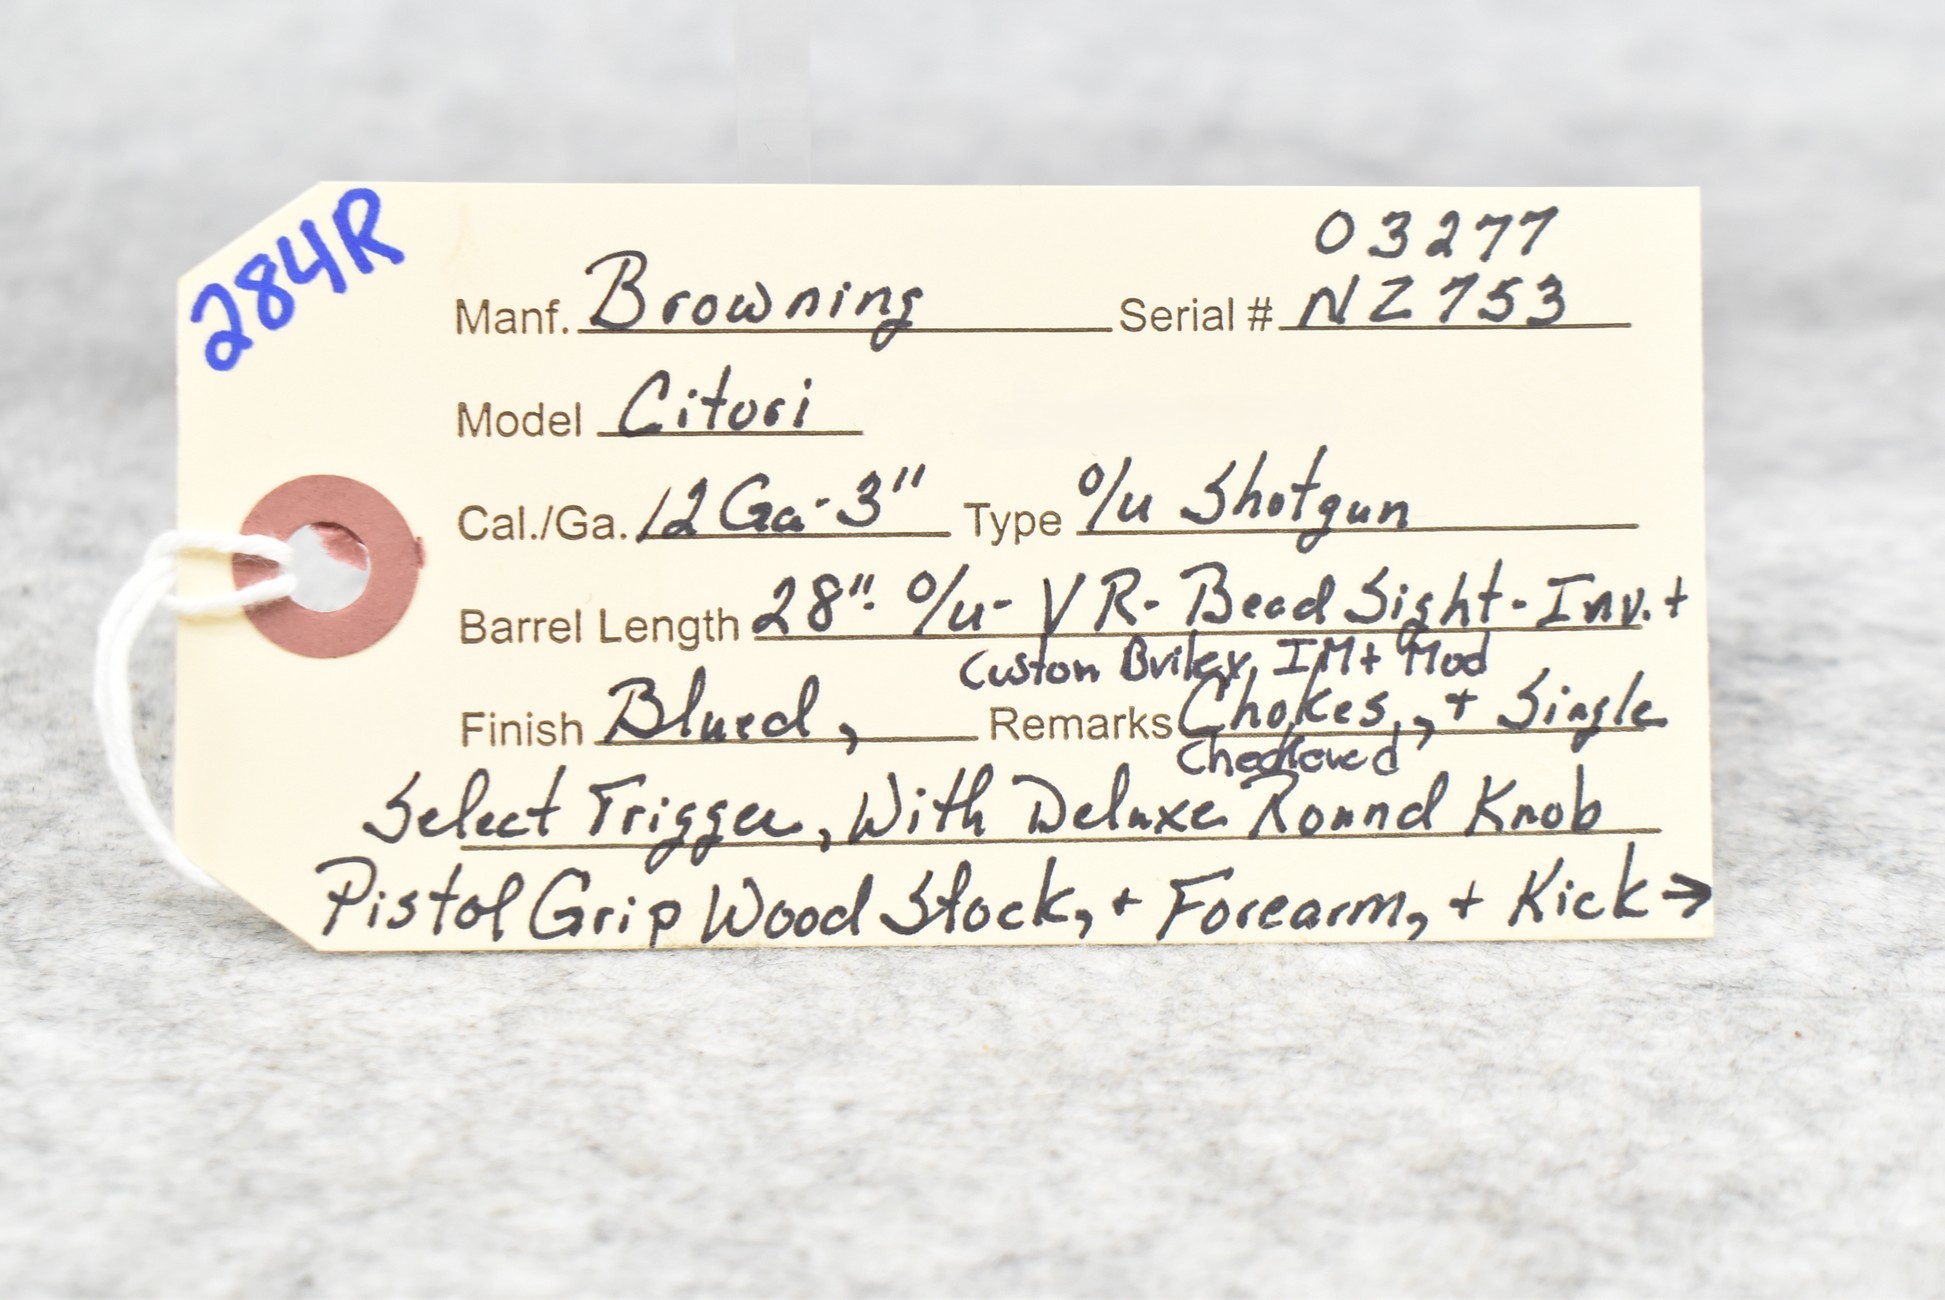 284R
03277
Manf. Browning Serial # NZ753
Model Citori
Cal./Ga. 12 Ga-3" Type O/u Shotgun
Barrel Length 28"- O/u- VR- Bead Sight- Inv. +
Custom Briley, IM + Mod
Finish Blued, Remarks Chokes, + Single
Checkered
Select Trigger, With Deluxe Round Knob
Pistol Grip Wood Stock, + Forearm, + Kick →